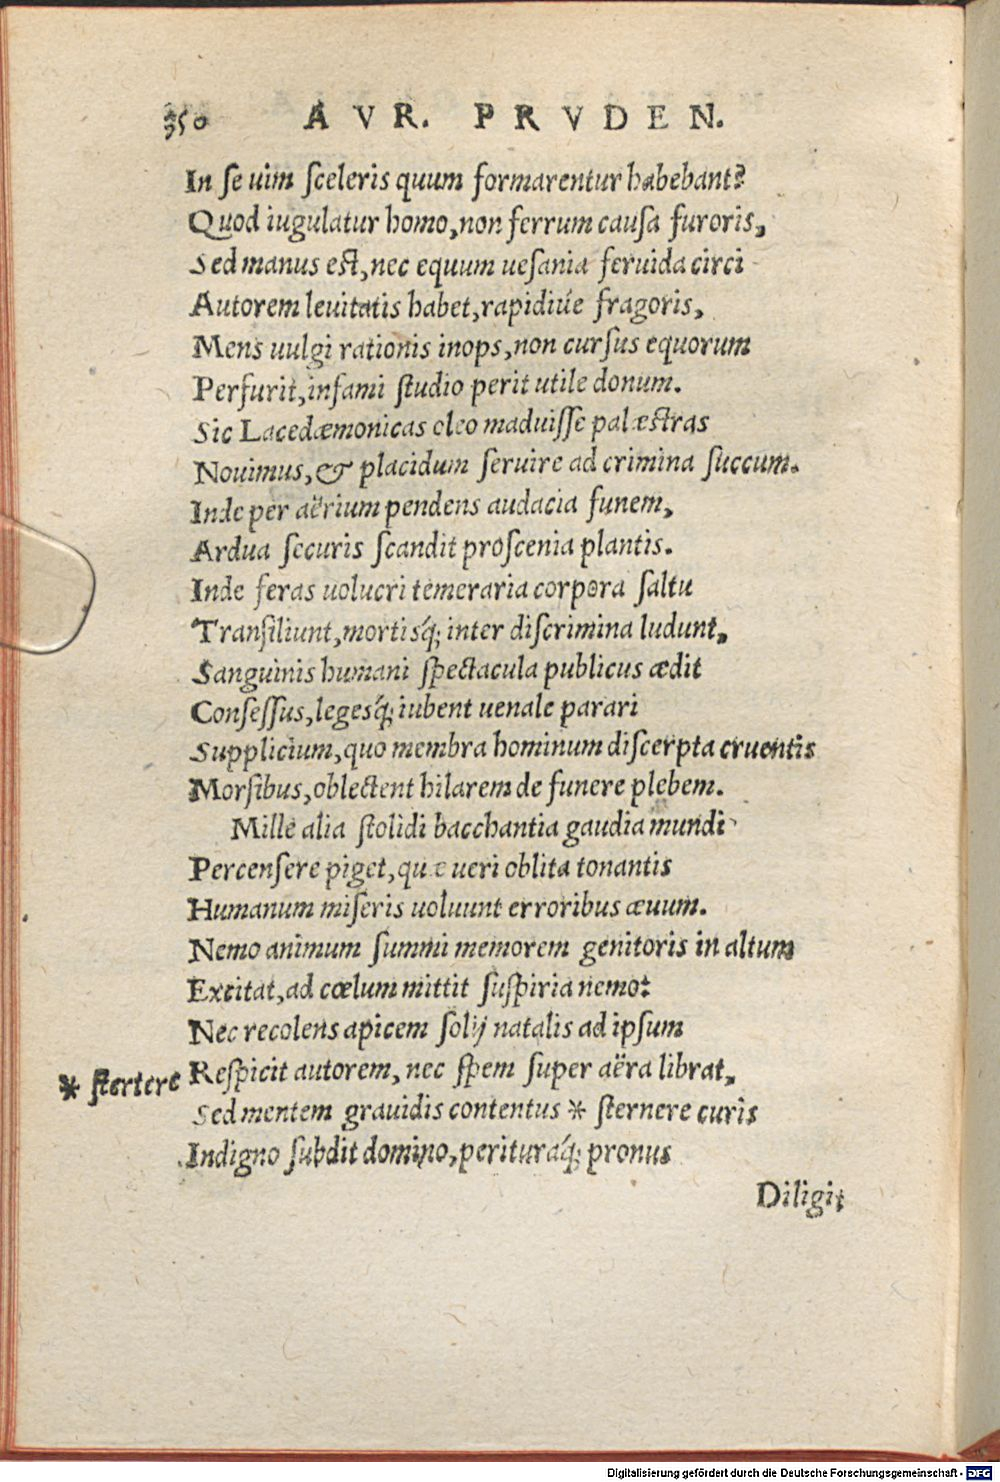 350 AVR. PRVDEN.
In se uim sceleris quum formarentur habebant?
Quod iugulatur homo, non ferrum causa furoris,
Sed manus est, nec equum uesania feruida circi
Autorem leuitatis habet, rapidiúe fragoris,
Mens uulgi rationis inops, non cursus equorum
Perfurit, infami studio perit utile donum.
Sic Lacedæmonicas oleo maduisse palæstras
Nouimus, & placidum seruire ad crimina succum.
Inde per aërium pendens audacia funem,
Ardua securis scandit proscenia plantis.
Inde feras uolucri temeraria corpora saltu
Transiliunt, mortisq́; inter discrimina ludunt,
Sanguinis humani spectacula publicus ædit
Consessus, legesq́; iubent uenale parari
Supplicium, quo membra hominum discerpta cruentis
Morsibus, oblectent hilarem de funere plebem.
Mille alia stolidi bacchantia gaudia mundi
Percensere piget, quæ ueri oblita tonantis
Humanum miseris uoluunt erroribus æuum.
Nemo animum summi memorem genitoris in altum
Excitat, ad cœlum mittit suspiria nemo:
Nec recolens apicem solij natalis ad ipsum
* stertere Respicit autorem, nec spem super aëra librat,
Sed mentem grauidis contentus * sternere curis
Indigno subdit domino, perituraq́; pronus
Diligit
Digitalisierung gefördert durch die Deutsche Forschungsgemeinschaft - DFG